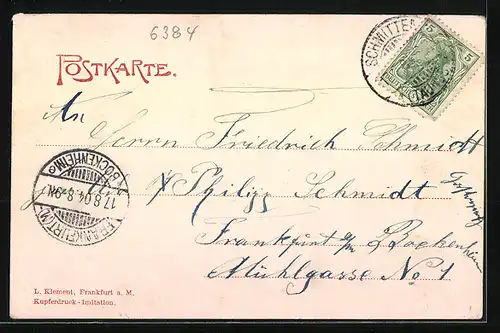 6384
POSTKARTE.
SCHMITTEN
5 5
(TAU
An
Herrn Friedrich Schmidt
Philipp Schmidt
Frankfurt a/m Bockenheim
Mühlgasse No 1
FRANKFURT (M.)
17.8.04. 8-9N.
BOCKENHEIM
L. Klement, Frankfurt a. M.
Kupferdruck-Imitation.